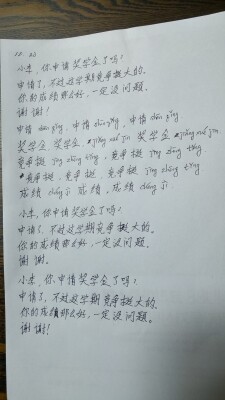 小李，你申请奖学金了吗？
申请了，不过这学期竞争挺大的。
你的成绩那么好，一定没问题。
谢谢！
申请 shēn qǐng，申请 shēn qǐng，申请 shēn qǐng
奖学金 奖学金 jiǎng xué jīn 奖学金 jiǎng xué jīn
竞争 挺 jìng zhēng tǐng，竞争 挺 jìng zhēng tǐng
竞争 挺，竞争 挺 jìng zhēng tǐng
成绩 chéng jì 成绩，成绩 chéng jì
小李，你申请奖学金了吗？
申请了，不过这学期竞争挺大的。
你的成绩那么好，一定没问题。
谢谢。
小李，你申请奖学金了吗？
申请了，不过这学期竞争挺大的。
你的成绩那么好，一定没问题。
谢谢！